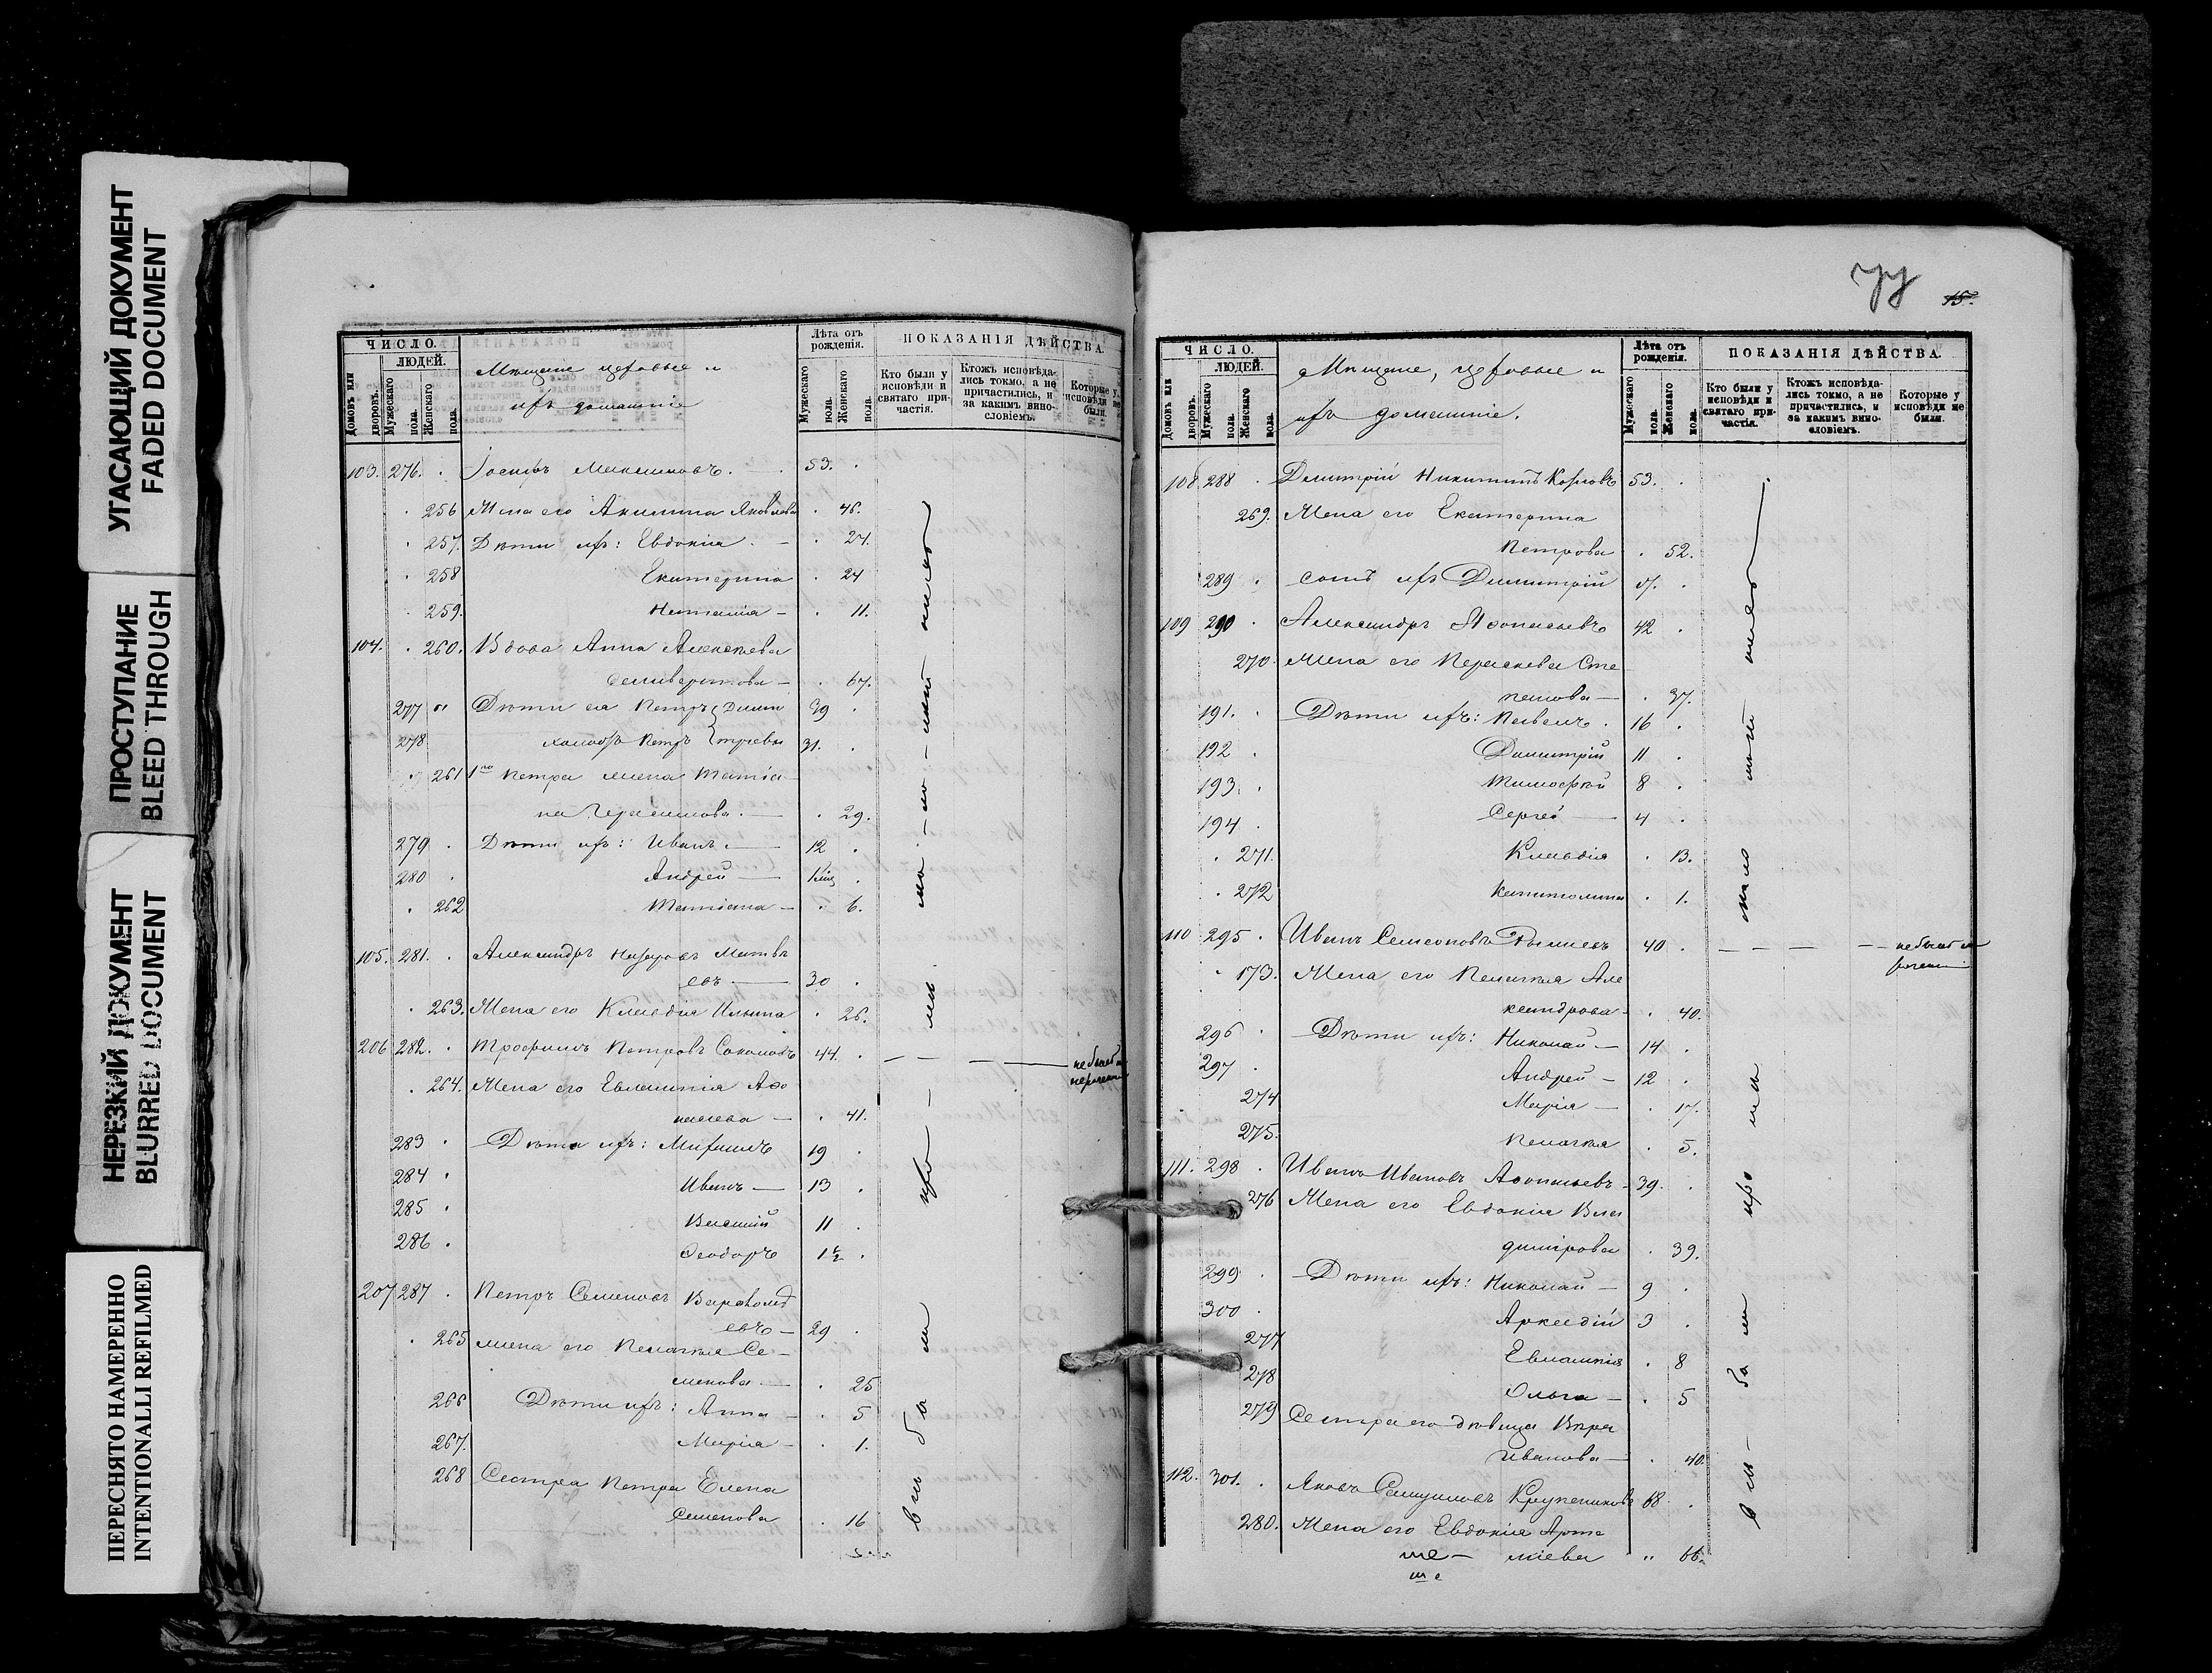 УГАСАЮЩИЙ ДОКУМЕНТ
FADED DOCUMENT
ПРОСТУПАНИЕ
BLEED THROUGH
НЕРЕЗКИЙ ДОКУМЕНТ
BLURRED DOCUMENT
ПЕРЕСНЯТО НАМЕРЕННО
INTENTIONALLI REFILMED
ЧИСЛО.
ЛЮДЕЙ.
Домовъ или дворовъ.
Мужескаго пола.
Женскаго пола.
Мѣщане цеховые и
ихъ домашніе
Лѣта отъ рожденія.
Мужескаго пола.
Женскаго пола.
ПОКАЗАНІЯ ДѢЙСТВА.
Кто были у исповѣди и святаго причастія.
Ктожъ исповѣдались токмо, а не причастились, и за какимъ винословіемъ.
Которые у исповѣди не были.
103. 276. Іосифъ Максимовъ. 53.
256 Жена его Акилина Яковлева 46.
257. Дѣти ихъ: Евдокія 27.
258 Екатерина 24
259. Наталія 11.
104. 260. Вдова Анна Алексѣева
Селиверстова 67.
277 Дѣти ея Петръ Дими 39
278 Петръ тріевы 31.
261 1го Петра жена Татіа
на Герасимова. 29.
279 Дѣти ихъ: Иванъ 12
280 Андрей
262 Татіана 6.
105. 281. Александръ Назаровъ Матвѣ
евъ 30
263. Жена его Клавдія Ильина 26.
206 282. Трофимъ Петровъ Соколовъ 44. не былъ по
264. Жена его Евлампія Аѳо
насьева 41.
283 Дѣти ихъ: Михаилъ 19
284 Иванъ 13
285 Василій 11
286 Ѳеодоръ 1½
207 287 Петръ Семеновъ
евъ 29
265 жена его Пелагія Се
менова 25
266 Дѣти ихъ: Анна 5
267. Марія 1.
268 Сестра Петра Елена
Семенова 16
77
15.
ЧИСЛО.
ЛЮДЕЙ.
Домовъ или дворовъ.
Мужескаго пола.
Женскаго пола.
Мѣщане, цеховые и
ихъ домашніе.
Лѣта отъ рожденія.
Мужескаго пола.
Женскаго пола.
ПОКАЗАНІЯ ДѢЙСТВА.
Кто были у исповѣди и святаго причастія.
Ктожъ исповѣдались токмо, а не причастились, и за какимъ винословіемъ.
Которые у исповѣди не были.
108 288 Димитрій Никитинъ Козловъ 53.
269. Жена его Екатерина
Петрова 52.
289 сынъ ихъ Димитрій
109 290 Александръ Аѳонасьевъ 42
270. Жена его Параскева Сте
панова 37.
191. Дѣти ихъ: Павелъ 16
192 Димитрій 11
193. Тимоѳей 8
194 Сергѣй 4
271. Клавдія 13.
272 Капитолина 1.
110 295 Иванъ Семеновъ 40 не былъ по
173. Жена его Пелагія Але
ксандрова 40.
296 Дѣти ихъ: Николай 14
297 Андрей 12
274 Марія 17.
275. Пелагія 5.
111. 298 Иванъ Ивановъ Аѳонасьевъ 39.
276 Жена его Евдокія Вла
димірова 39.
299 Дѣти ихъ: Николай 9
300 Аркадій 3
277 Евлампія 8
278 Ольга 5
279 Сестра его дѣвица Вѣра
Иванова 40.
112. 301. Яковъ Самуиловъ Крупениковъ 68
280. Жена его Евдокія Арте
міева 66.